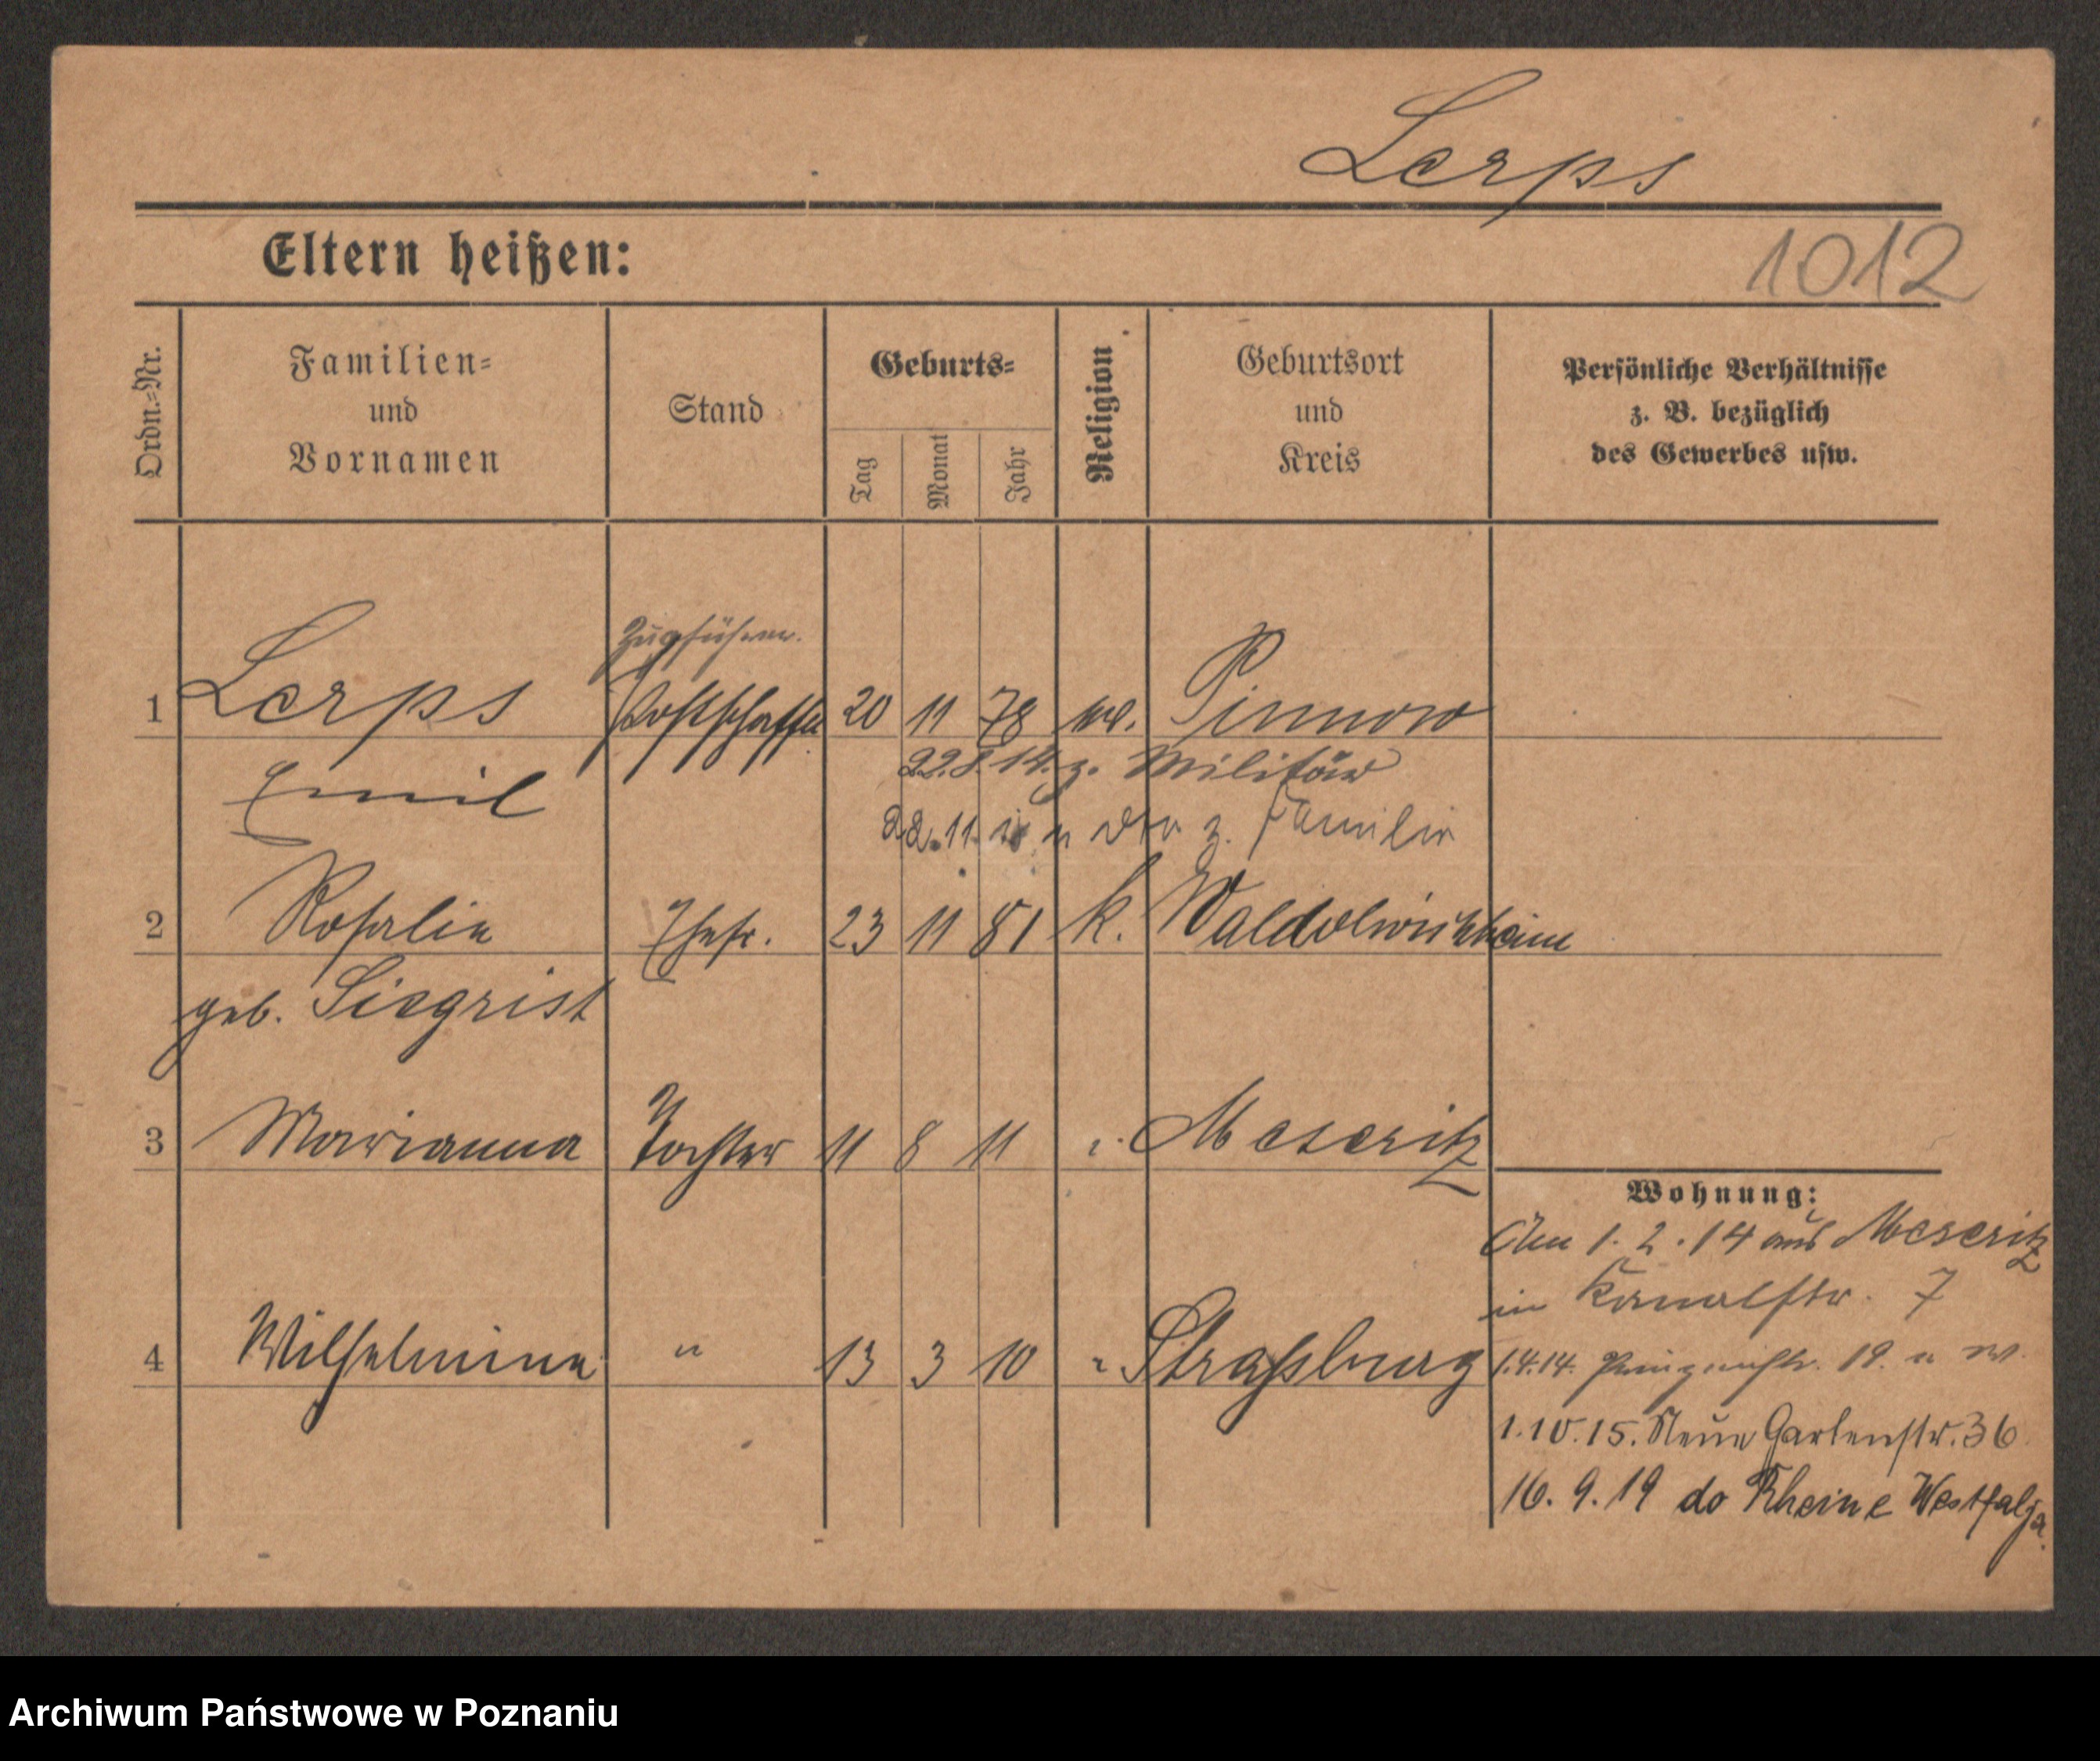 Lerps
Eltern heißen:
1012
Ordn.=Nr.
Familien=
und
Vornamen
Stand
Geburts=
Tag
Monat
Jahr
Religion
Geburtsort
und
Kreis
Persönliche Verhältnisse
z. B. bezüglich
des Gewerbes usw.
Zugführer.
1 Lerps 20 11 78 Pinnow
22.8.14. z. Militär
Emil
22.11 z. Familie
2 Rosalie Ehefr. 23 11 81 k. Waldolwisheim
geb. Siegrist
3 Marianna Tochter 11 8 11 " Meseritz
Wohnung:
Am 1.2.14 aus Meseritz
in Kanalstr. 7
4 Wilhelmine " 13 3 10 " Straßburg
1.4.14. 19.
1.10.15. Neue Gartenstr. 36
16.9.19 do Rheine Westfalja.
Archiwum Państwowe w Poznaniu